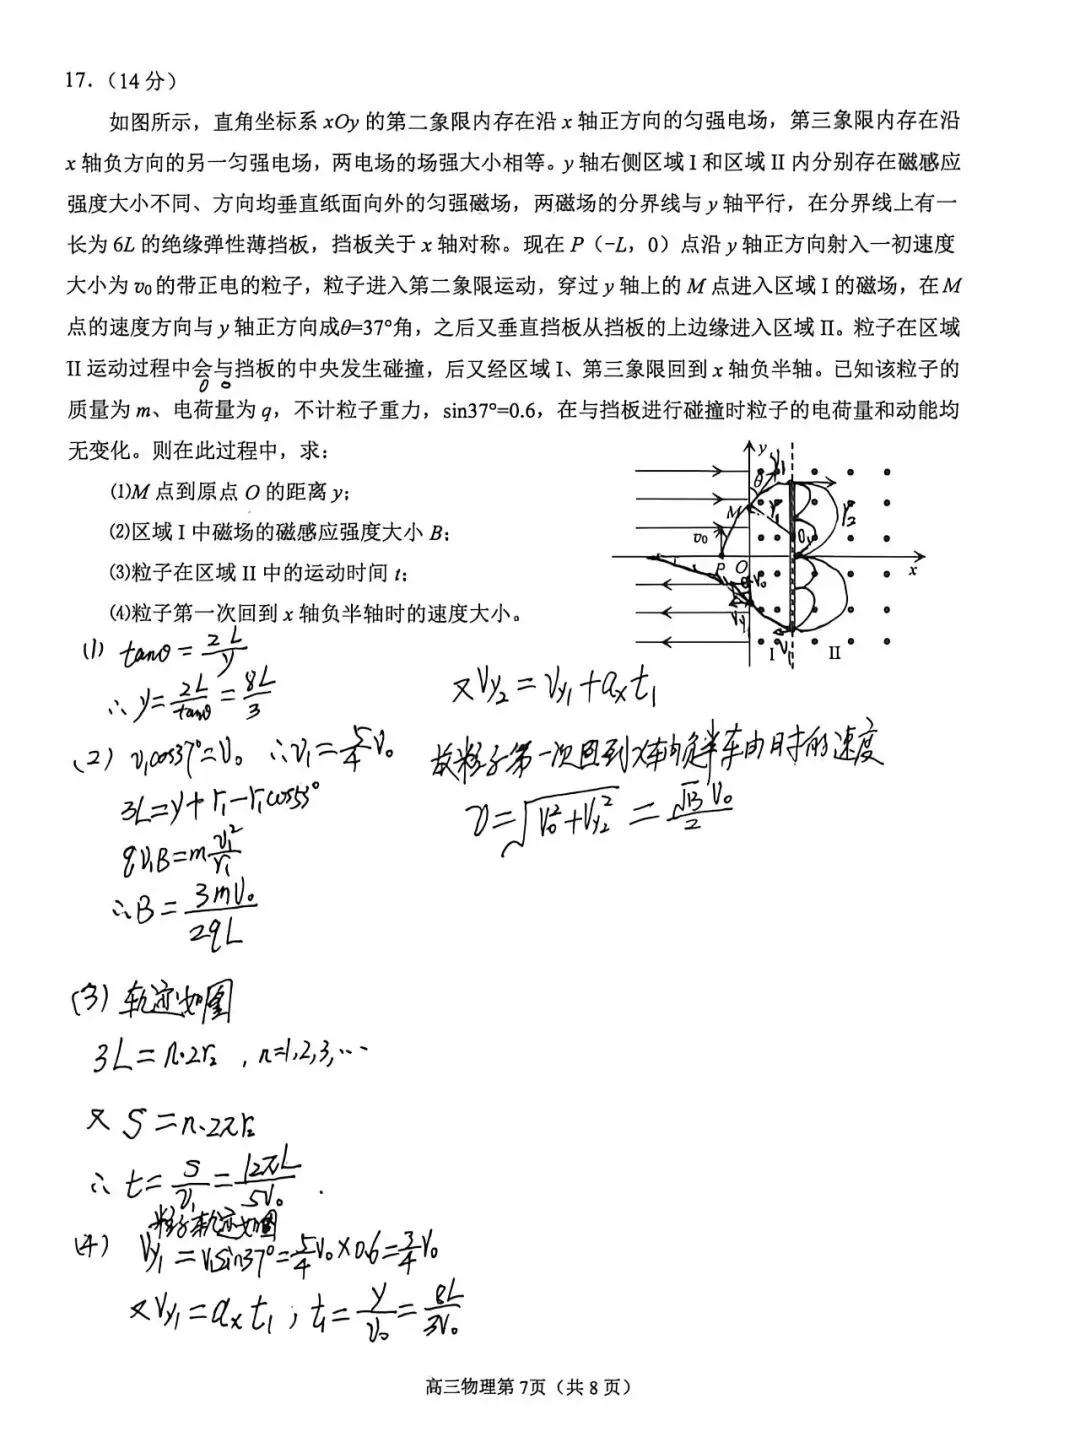 17.（14 分）
如图所示，直角坐标系 xOy 的第二象限内存在沿 x 轴正方向的匀强电场，第三象限内存在沿
x 轴负方向的另一匀强电场，两电场的场强大小相等。y 轴右侧区域 I 和区域 II 内分别存在磁感应
强度大小不同、方向均垂直纸面向外的匀强磁场，两磁场的分界线与 y 轴平行，在分界线上有一
长为 6L 的绝缘弹性薄挡板，挡板关于 x 轴对称。现在 P（-L，0）点沿 y 轴正方向射入一初速度
大小为 v₀ 的带正电的粒子，粒子进入第二象限运动，穿过 y 轴上的 M 点进入区域 I 的磁场，在 M
点的速度方向与 y 轴正方向成θ=37°角，之后又垂直挡板从挡板的上边缘进入区域 II。粒子在区域
II 运动过程中会与挡板的中央发生碰撞，后又经区域 I、第三象限回到 x 轴负半轴。已知该粒子的
质量为 m、电荷量为 q，不计粒子重力，sin37°=0.6，在与挡板进行碰撞时粒子的电荷量和动能均
无变化。则在此过程中，求：
(1)M 点到原点 O 的距离 y；
(2)区域 I 中磁场的磁感应强度大小 B；
(3)粒子在区域 II 中的运动时间 t；
(4)粒子第一次回到 x 轴负半轴时的速度大小。
y
θ
M
v₀
P
O
x
I
II
r₁
r₂
O₁
v₁
(1) tanθ = 2L/y
∴ y = 2L/tanθ = 8L/3
(2) v₁cos37° = v₀ ∴ v₁ = 5/4 v₀
3L = y + r₁ - r₁cos53°
qv₁B = m v₁²/r₁
∴ B = 3mv₀/2qL
(3) 轨迹如图
3L = n·2r₂ , n=1,2,3,…
又 S = n·2πr₂
∴ t = S/v₁ = 12πL/5v₀ .
粒子轨迹如图
(4) Vy₁ = v₁sin37° = 5/4 v₀ × 0.6 = 3/4 v₀
又 Vy₁ = aₓt₁ ; t₁ = y/v₀ = 8L/3v₀
又 Vy₂ = Vy₁ + aₓt₁
故粒子第一次回到x轴负半轴时的速度
v = √(v₀² + Vy₂²) = √13 v₀/2
高三物理第 7页（共 8 页）